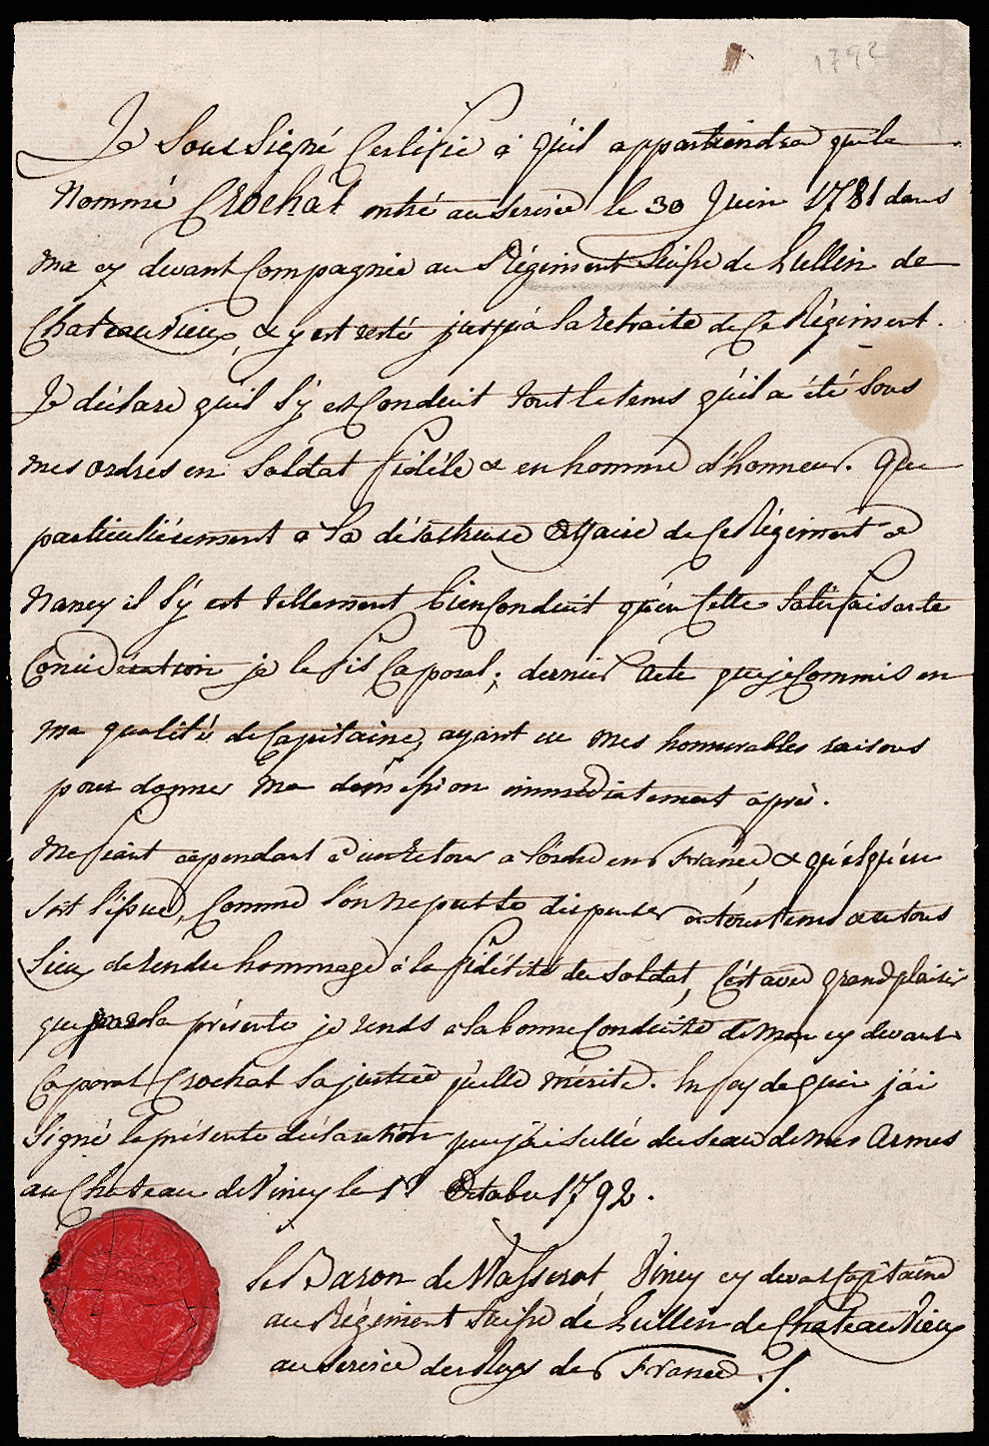 1792
Je Soussigné Certifie à qu'il appartiendra que le
Nommé Crochat entré au Service le 30 Juin 1781 dans
ma cy devant Compagnie au Régiment Suisse de Lullin de
Chateauvieux, & y est resté jusqu'à la retraite de Ce Régiment.
Je déclare qu'il s'y est Conduit tout le tems qu'il a été Sous
mes ordres en Soldat fidéle & en homme d'honneur. Que
particuliérement à la désastreuse affaire de Ce Régiment a
Nancy il s'y est tellement bien Conduit qu'en Cette Satisfaisante
Considération je le fis Caporal; dernier acte que je Commis en
ma qualité de Capitaine, ayant eu mes honnorables raisons
pour donner ma démission immédiatement après.
Me fiant cependant à un retour à l'ordre en France, & quelqu'en
soit l'issue, Comme l'on ne peut se dispenser en tous tems & en tous
Lieux de rendre hommage à la fidélité du Soldat, C'est avec grand plaisir
que par la présente je rends à la bonne Conduite de mon cy devant
Caporal Crochat la justice qu'elle mérite. En foy de quoi j'ai
Signé la présente déclaration que j'ai Sellée du Seau de mes Armes
au Chateau de Viney le 1r Octobre 1792.
Le Baron de Masserot Viney cy devant Capitaine
au Régiment Suisse de Lullin de Chateauvieux
au Service du Roy de France